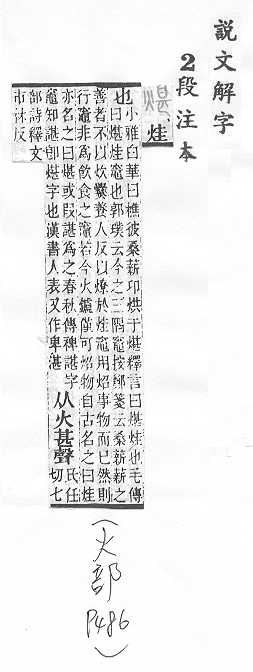 說文解字
2段注本
烓
也
小雅白華曰樵彼桑薪卬烘于煁釋言曰煁烓也毛傳
曰煁烓竈也郭璞云今之三隅竈按鄭箋云桑薪薪之
善者不以炊爨養人反以燎於烓竈用炤事物而已然則
行竈非爲飮食之竈若今火鑪僅可炤物自古名之曰烓
亦名之曰煁或叚諶爲之春秋傳裨諶字
竈知諶卽煁字也漢書人表又作卑湛
从火甚聲
氏任
切七
部詩釋文
市林反
(火部 P486)